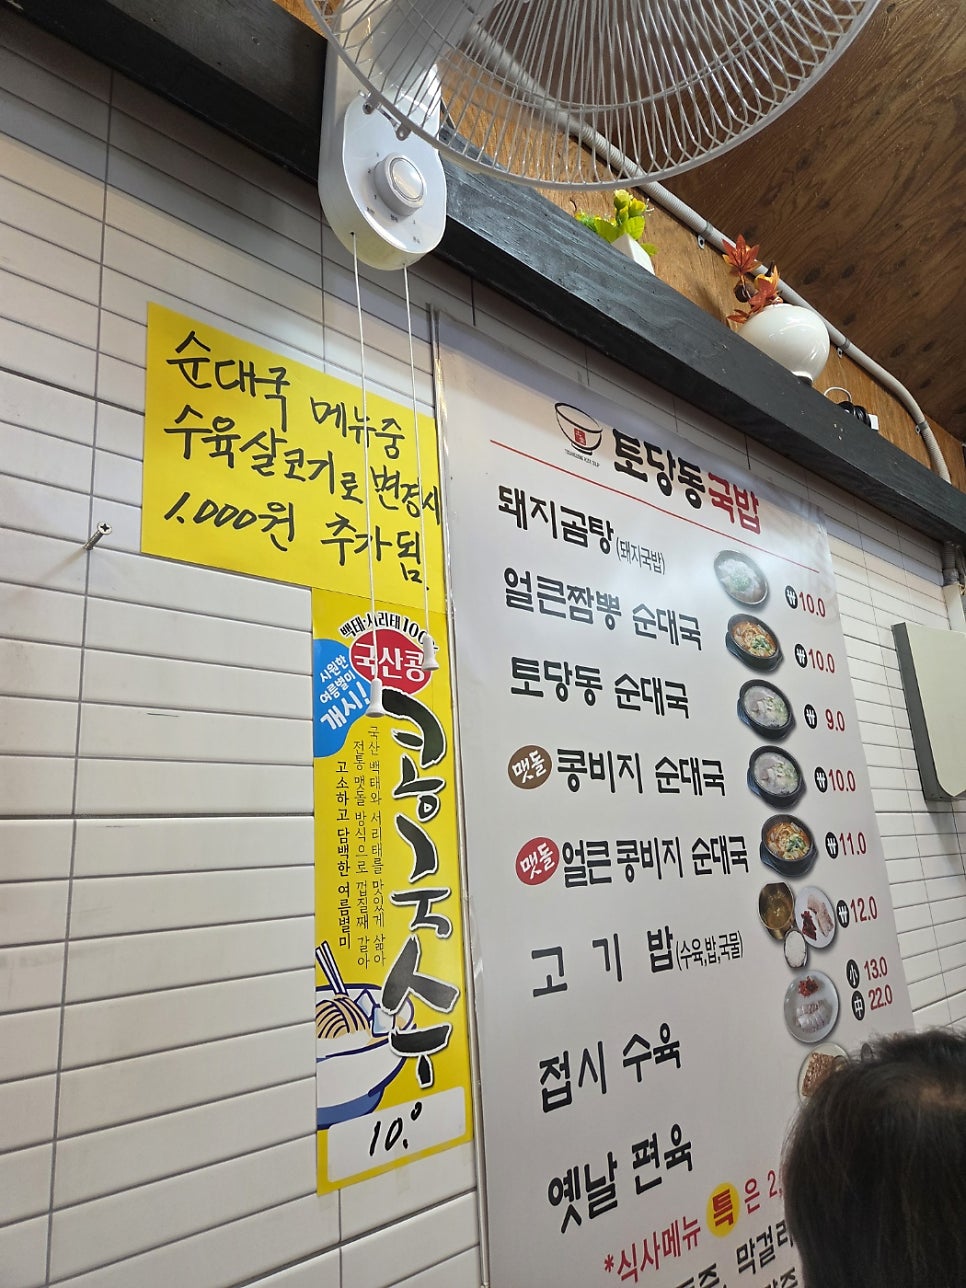 순대국 메뉴중
수육살코기로 변경시
1.000원 추가됨.
백태·서리태100%
국산콩
시원한
여름별미
개시!
콩국수
국산 백태와 서리태를 맛있게 삶아
전통 맷돌 방식으로 껍질째 갈아
고소하고 담백한 여름별미
10.0
토당동국밥
돼지곰탕(돼지국밥) ₩10.0
얼큰짬뽕 순대국 ₩10.0
토당동 순대국 ₩9.0
맷돌 콩비지 순대국 ₩10.0
맷돌 얼큰콩비지 순대국 ₩11.0
고기밥(수육,밥,국물) ₩12.0
접시 수육 小 13.0
中 22.0
옛날 편육
*식사메뉴 특은 2,
막걸리